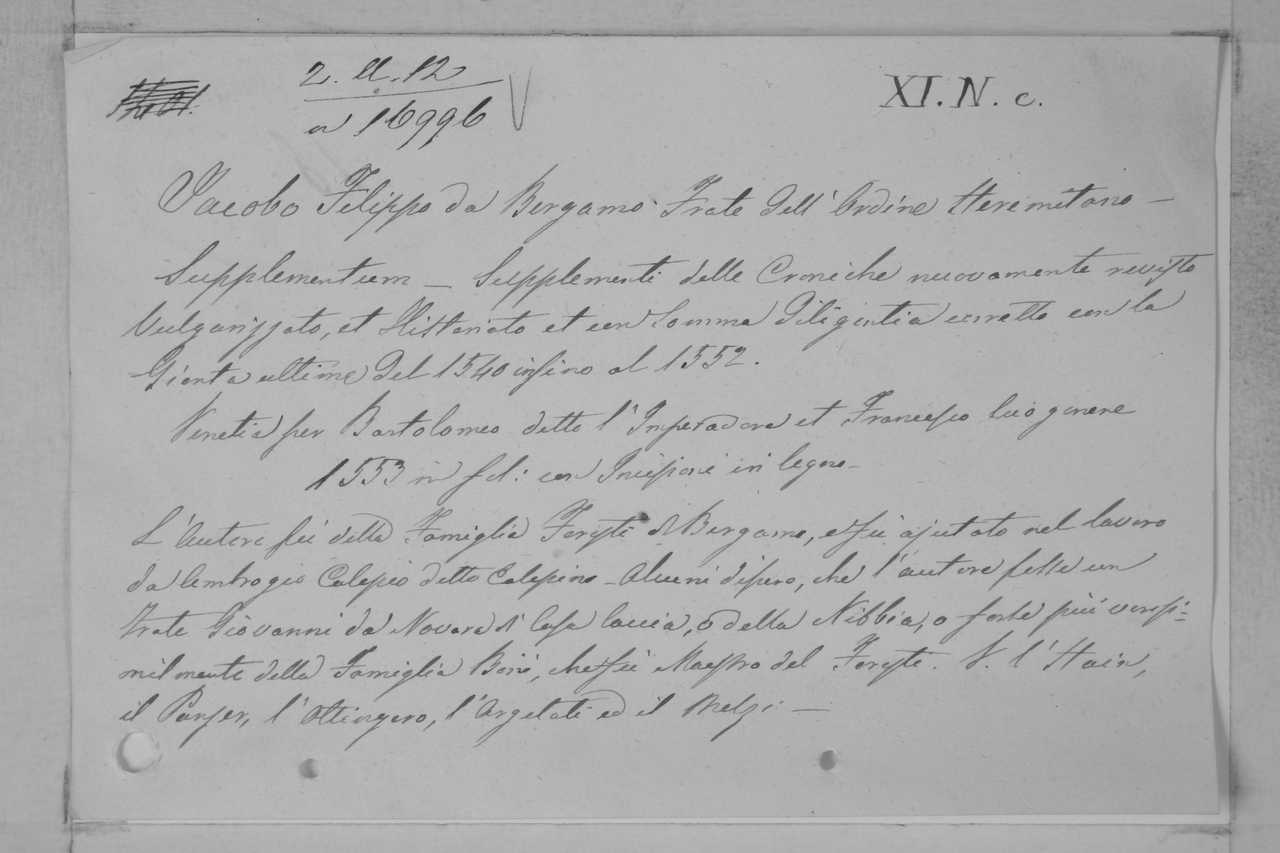 2. ll. 12
a 16996
XI. N. c.
Jacobo Filippo da Bergamo Frate dell'Ordine Heremitano —
Supplementum — Supplementi delle Croniche nuovamente revisto
Vulgarizzato, et Historiato et con somma diligentia corretto con la
Gionta ultime del 1540 insino al 1552.
Venetia per Bartolomeo detto l'Imperadore et Francesco suo genere
1553 in fol: con Incisioni in legno —
L'Autore fù della Famiglia Foresti di Bergamo, e fu ajutato nel lavoro
da Ambrogio Calepio detto Calepino — Alcuni dissero, che l'autore fosse un
Frate Giovanni da Novara di Casa Caccia, o della Nibbia, o forse più verosi-
milmente della Famiglia Boni, che fù Maestro del Foresti. V. l'Hain,
il Panzer, l'Ottingero, l'Argelati ed il Melzi —